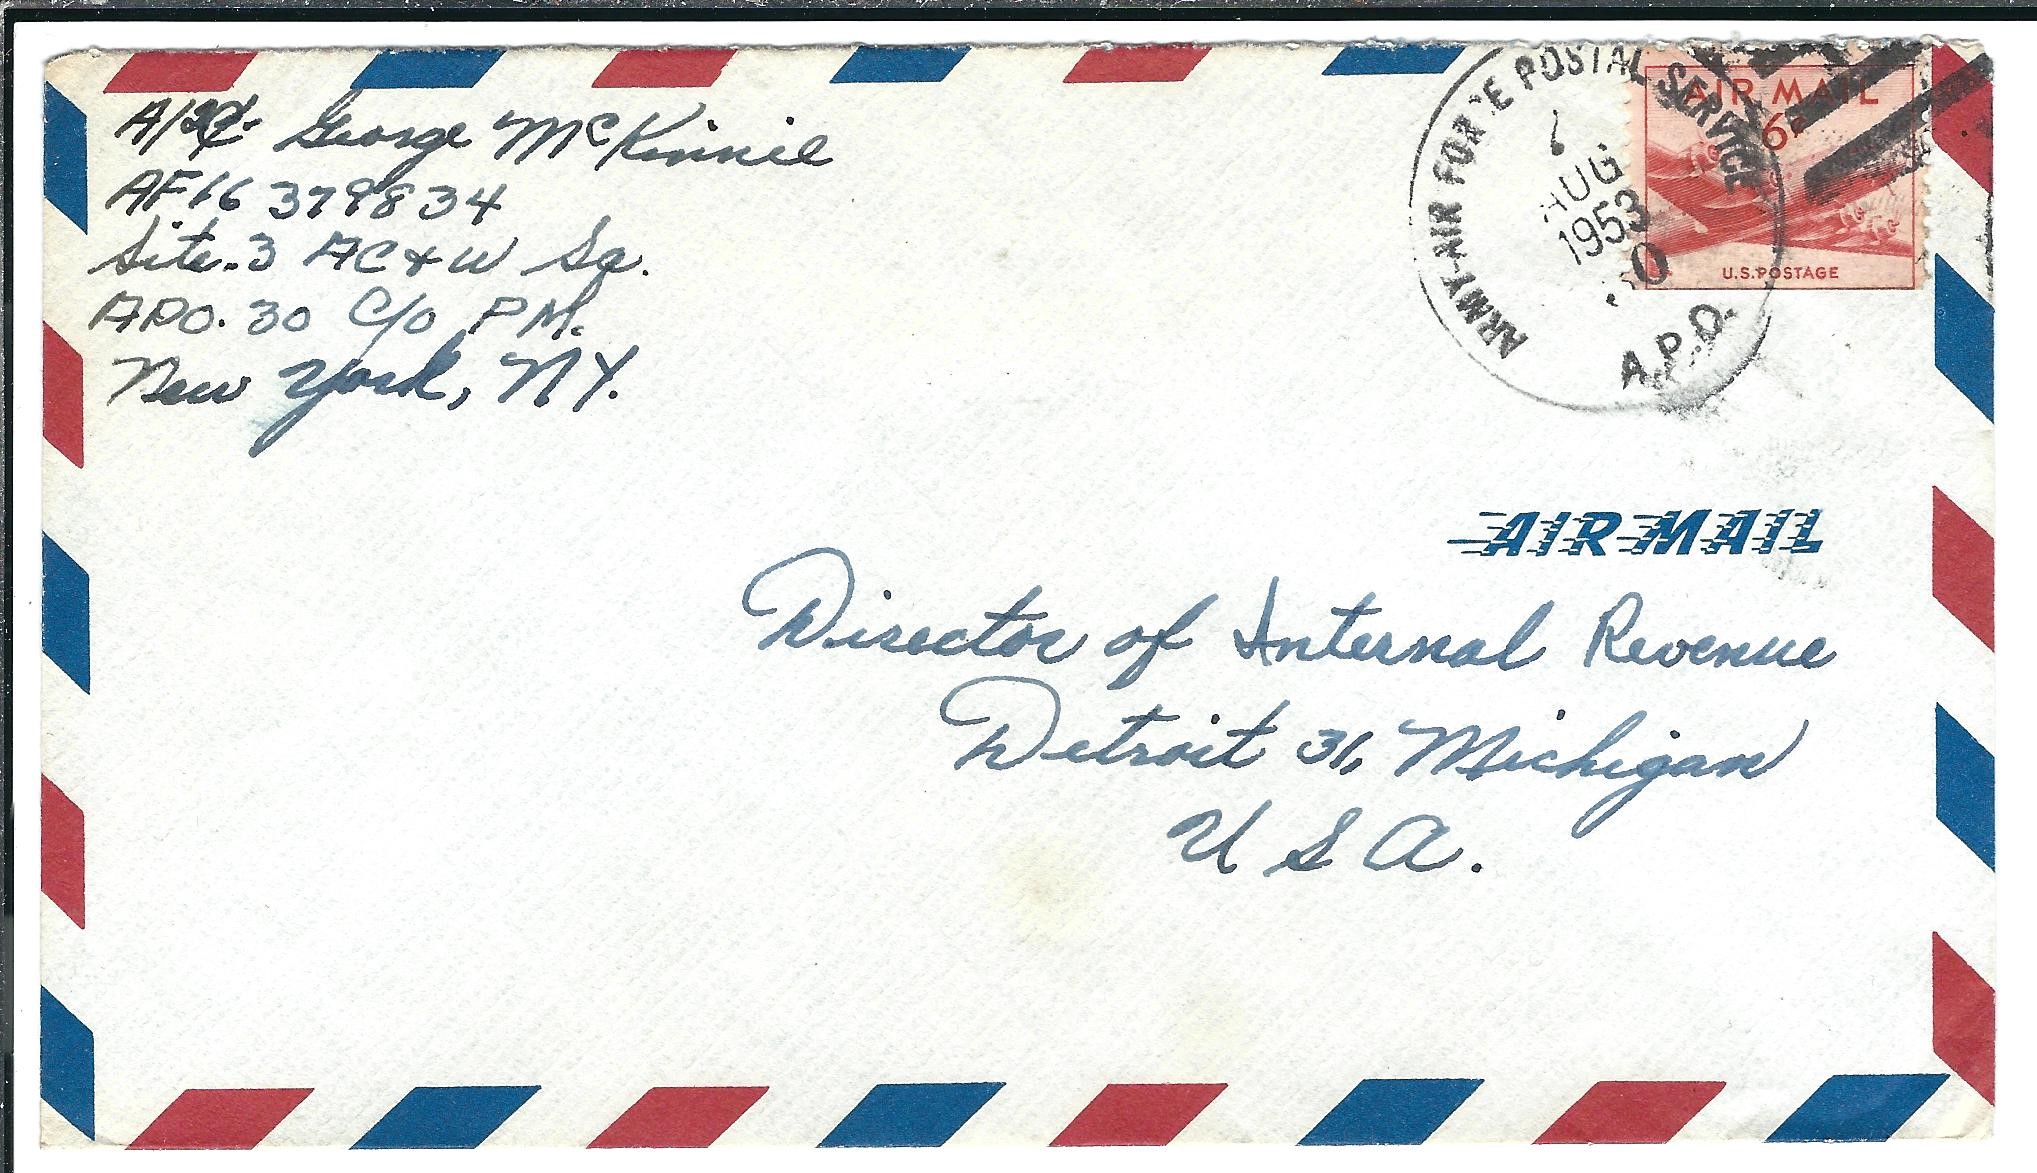 A/2C. George McKinnie
AF16 379834
Site-3 AC&W Sq.
APO. 30 C/O PM.
New York, NY.
ARMY-AIR FORCE POSTAL SERVICE
AUG
1953
30
A.P.O.
AIR MAIL
6¢
U.S. POSTAGE
AIR MAIL
Director of Internal Revenue
Detroit 31, Michigan
U S A.